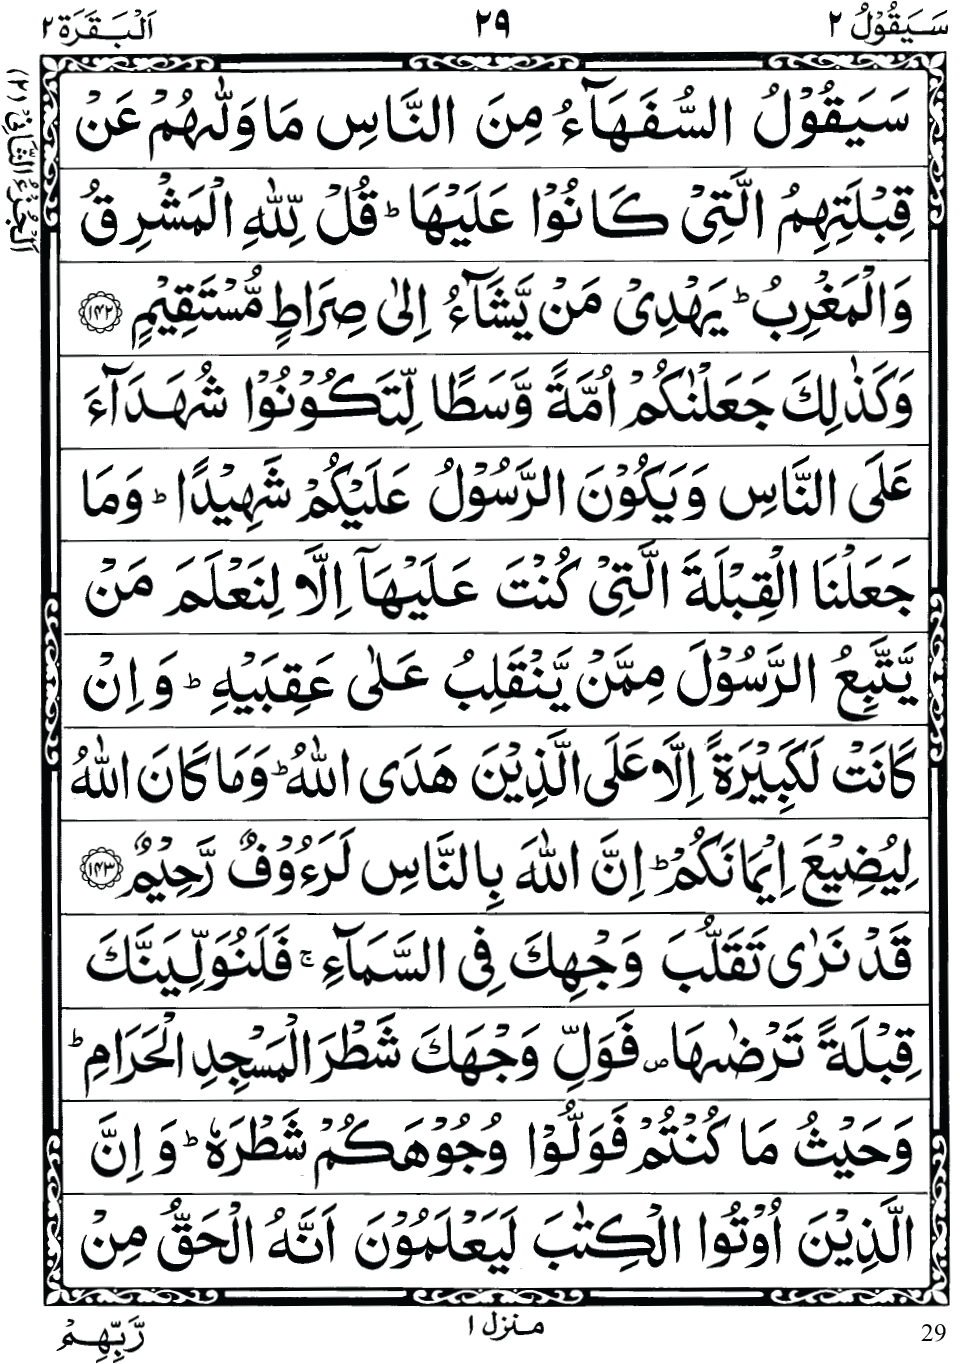 سَيَقُوْلُ ٢
٢٩
اَلْبَقَرَة ٢
اَلْجُزْءُ الثَّانِیْ (٢)
سَيَقُوْلُ السُّفَهَآءُ مِنَ النَّاسِ مَا وَلّٰىهُمْ عَنْ
قِبْلَتِهِمُ الَّتِیْ كَانُوْا عَلَيْهَا ؕ قُلْ لِّلّٰهِ الْمَشْرِقُ
وَالْمَغْرِبُ ؕ يَهْدِیْ مَنْ يَّشَآءُ اِلٰى صِرَاطٍ مُّسْتَقِيْمٍ ۝١٤٢
وَكَذٰلِكَ جَعَلْنٰكُمْ اُمَّةً وَّسَطًا لِّتَكُوْنُوْا شُهَدَآءَ
عَلَى النَّاسِ وَيَكُوْنَ الرَّسُوْلُ عَلَيْكُمْ شَهِيْدًا ؕ وَمَا
جَعَلْنَا الْقِبْلَةَ الَّتِیْ كُنْتَ عَلَيْهَآ اِلَّا لِنَعْلَمَ مَنْ
يَّتَّبِعُ الرَّسُوْلَ مِمَّنْ يَّنْقَلِبُ عَلٰى عَقِبَيْهِ ؕ وَاِنْ
كَانَتْ لَكَبِيْرَةً اِلَّا عَلَى الَّذِيْنَ هَدَى اللّٰهُ ؕ وَمَا كَانَ اللّٰهُ
لِيُضِيْعَ اِيْمَانَكُمْ ؕ اِنَّ اللّٰهَ بِالنَّاسِ لَرَءُوْفٌ رَّحِيْمٌ ۝١٤٣
قَدْ نَرٰى تَقَلُّبَ وَجْهِكَ فِی السَّمَآءِ ۚ فَلَنُوَلِّيَنَّكَ
قِبْلَةً تَرْضٰىهَا ۪ فَوَلِّ وَجْهَكَ شَطْرَ الْمَسْجِدِ الْحَرَامِ ؕ
وَحَيْثُ مَا كُنْتُمْ فَوَلُّوْا وُجُوْهَكُمْ شَطْرَهٗ ؕ وَاِنَّ
الَّذِيْنَ اُوْتُوا الْكِتٰبَ لَيَعْلَمُوْنَ اَنَّهُ الْحَقُّ مِنْ
رَّبِّهِمْ
منزل ١
29